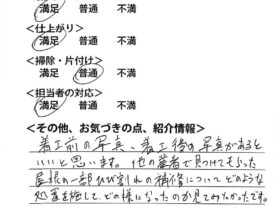 満足 普通 不満
<仕上がり>
満足 普通 不満
<掃除・片付け>
満足 普通 不満
<担当者の対応>
満足 普通 不満
<その他、お気づきの点、紹介情報>
着工前の写真、着工後の写真があると
いいと思います。他の業者で見つけてもらった
屋根の一部ひび割れの補修についてどのような
処置を施して、どの様になったのか見てみたかったです。